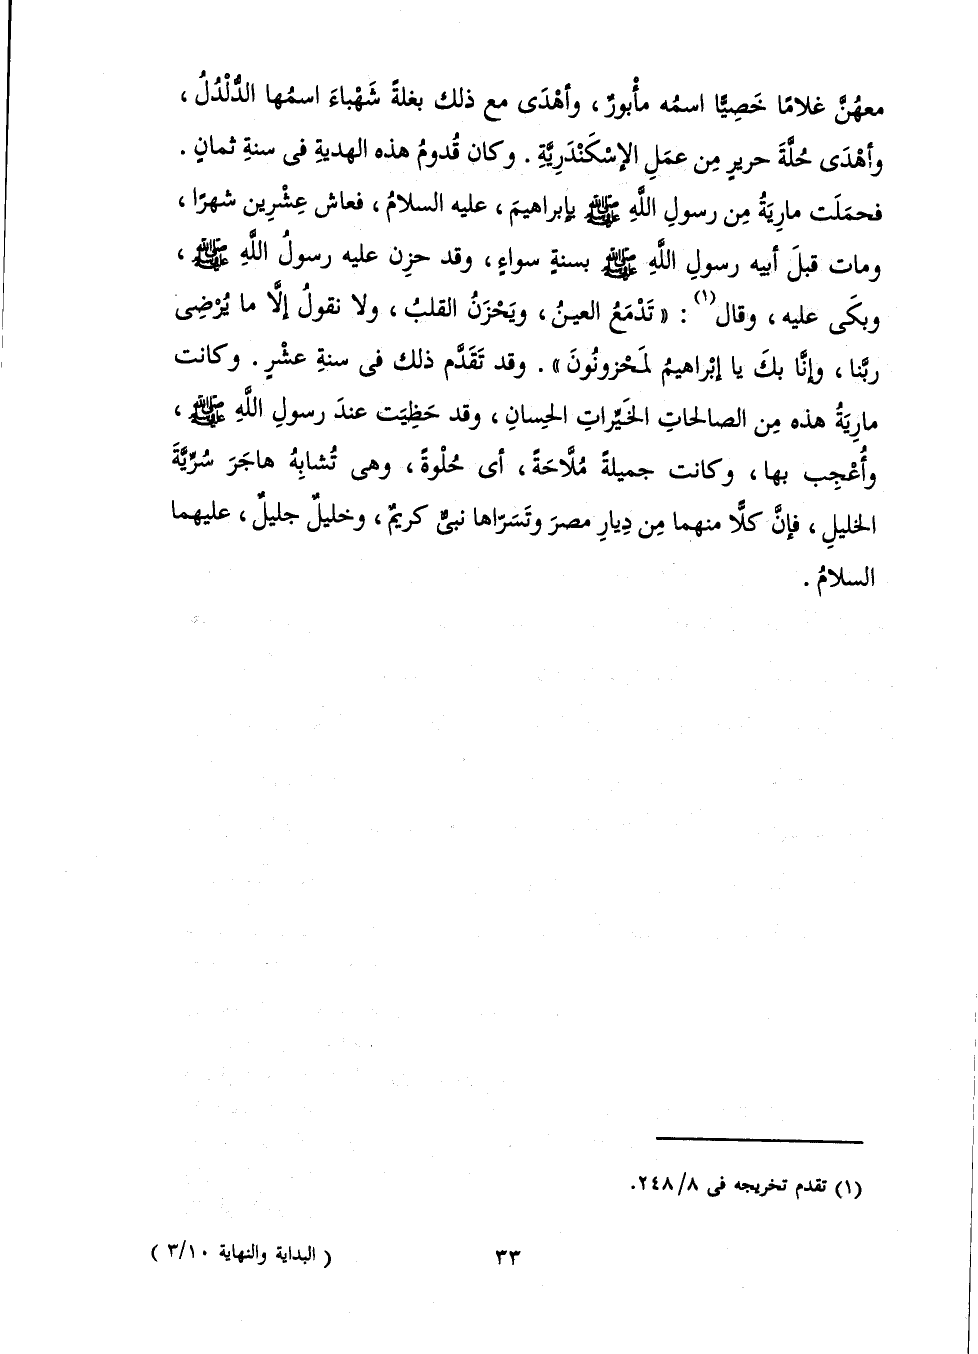 معهُنَّ غلامًا خَصِيًّا اسمُه مأْبورٌ ، وأَهْدَى مع ذلك بغلةً شَهْباءَ اسمُها الدُّلْدُلُ ،
وأَهْدَى حُلَّةَ حريرٍ مِن عمَلِ الإسْكَنْدَرِيَّةِ . وكان قُدومُ هذه الهديةِ فى سنةِ ثمانٍ .
فحمَلَت مارِيَةُ مِن رسولِ اللَّهِ ﷺ بإبراهيمَ ، عليه السلامُ ، فعاش عِشْرِين شهرًا ،
ومات قبلَ أبيه رسولِ اللَّهِ ﷺ بسنةٍ سواءٍ ، وقد حزِن عليه رسولُ اللَّهِ ﷺ ،
وبكَى عليه ، وقال(١) : « تَدْمَعُ العينُ ، ويَحْزَنُ القلبُ ، ولا نقولُ إلَّا ما يُرْضِى
ربَّنا ، وإنَّا بكَ يا إبْراهيمُ لَمَحْزونُونَ » . وقد تَقَدَّم ذلك فى سنةِ عشْرٍ . وكانت
مارِيَةُ هذه مِن الصالحاتِ الخَيِّراتِ الحِسانِ ، وقد حَظِيَت عندَ رسولِ اللَّهِ ﷺ ،
وأُعْجِب بها ، وكانت جميلةً مُلَّاحَةً ، أى حُلْوةً ، وهى تُشابِهُ هاجَرَ سُرِّيَّةَ
الخليلِ ، فإنَّ كلًّا منهما مِن دِيارِ مصرَ وتَسَرّاها نبىٌّ كريمٌ ، وخليلٌ جليلٌ ، عليهما
السلامُ .
(١) تقدم تخريجه فى ٢٤٨/٨.
٣٣
( البداية والنهاية ٣/١٠ )